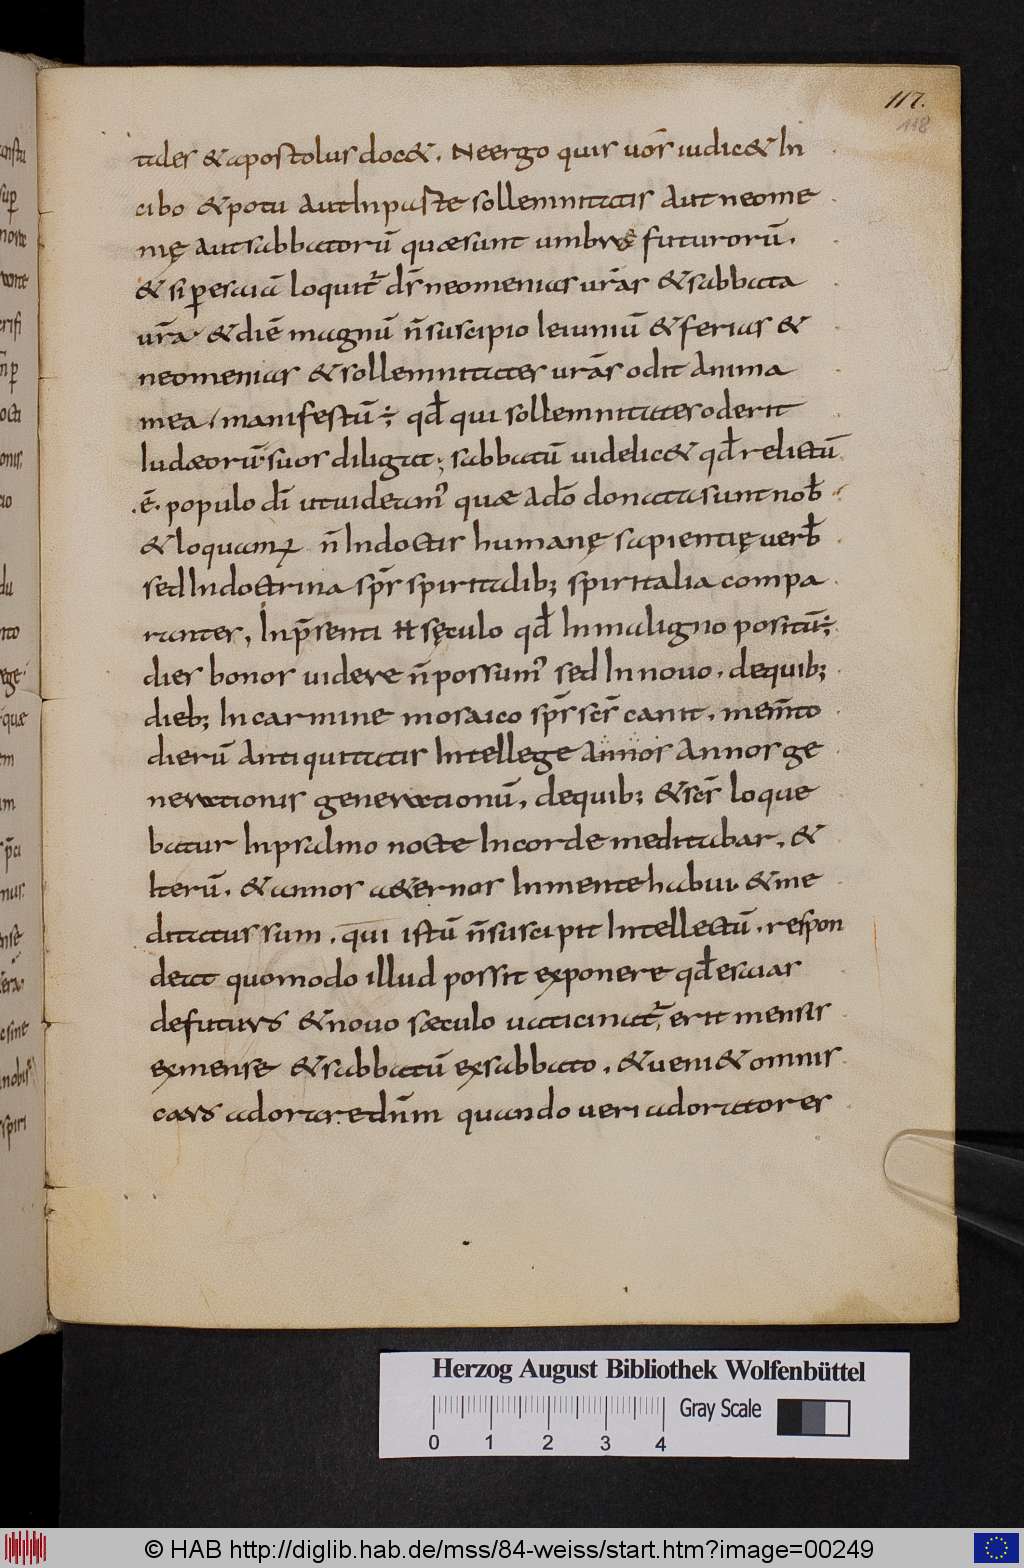 117.
118
tates & apostolus doc&. Ne ergo quis uos̄ iudic& In
cibo & potu aut In parte sollemnitatis aut neome
nię aut sabbatorū quæ sunt umbra futurorū.
& si p esaiā loquit̄ dn̄s neomenias ur̄as & sabbata
ur̄a & diē magnū n̄ suscipio Ieiuniū & ferias &
neomenias & sollemnitates ur̄as odit anima
mea, manifestū ÷ qd̄ qui sollemnitates oderit
Iudæorū suos diligat; sabbatū uidelic& qd̄ relictū
ē. populo dī ut uideam' quæ a do̅ donata sunt nob̄
& loquamur n̄ In doctis humanę sapientię uerb̄
sed In doctrina sp̄s spiritalib; spiritalia compa
rantes, In p̄senti ħ sęculo qd̄ In maligno positū ÷;
dies bonos uidere n̄ possum' sed In nouo. de quib;
dieb; In carmine mosaico sp̄s sc̄s canit. mem̄to
dierū antiquitatis Intellege annos annos ge
nerationis generationū, de quib; & sc̄s loque
batur In psalmo nocte In corde meditabar, &
Iterū. & annos a&ernos In mente habui. & me
ditatus sum. qui istū n̄ suscipit Intellectū. respon
deat quomodo illud possit exponere qd̄ esaias
de futuro & nouo sæculo uaticinat̄, erit mensis
ex mense & sabbatū ex sabbato. & ueni& omnis
caro adorare dn̄m quando ueri adoratores
Herzog August Bibliothek Wolfenbüttel
Gray Scale
0 1 2 3 4
© HAB http://diglib.hab.de/mss/84-weiss/start.htm?image=00249